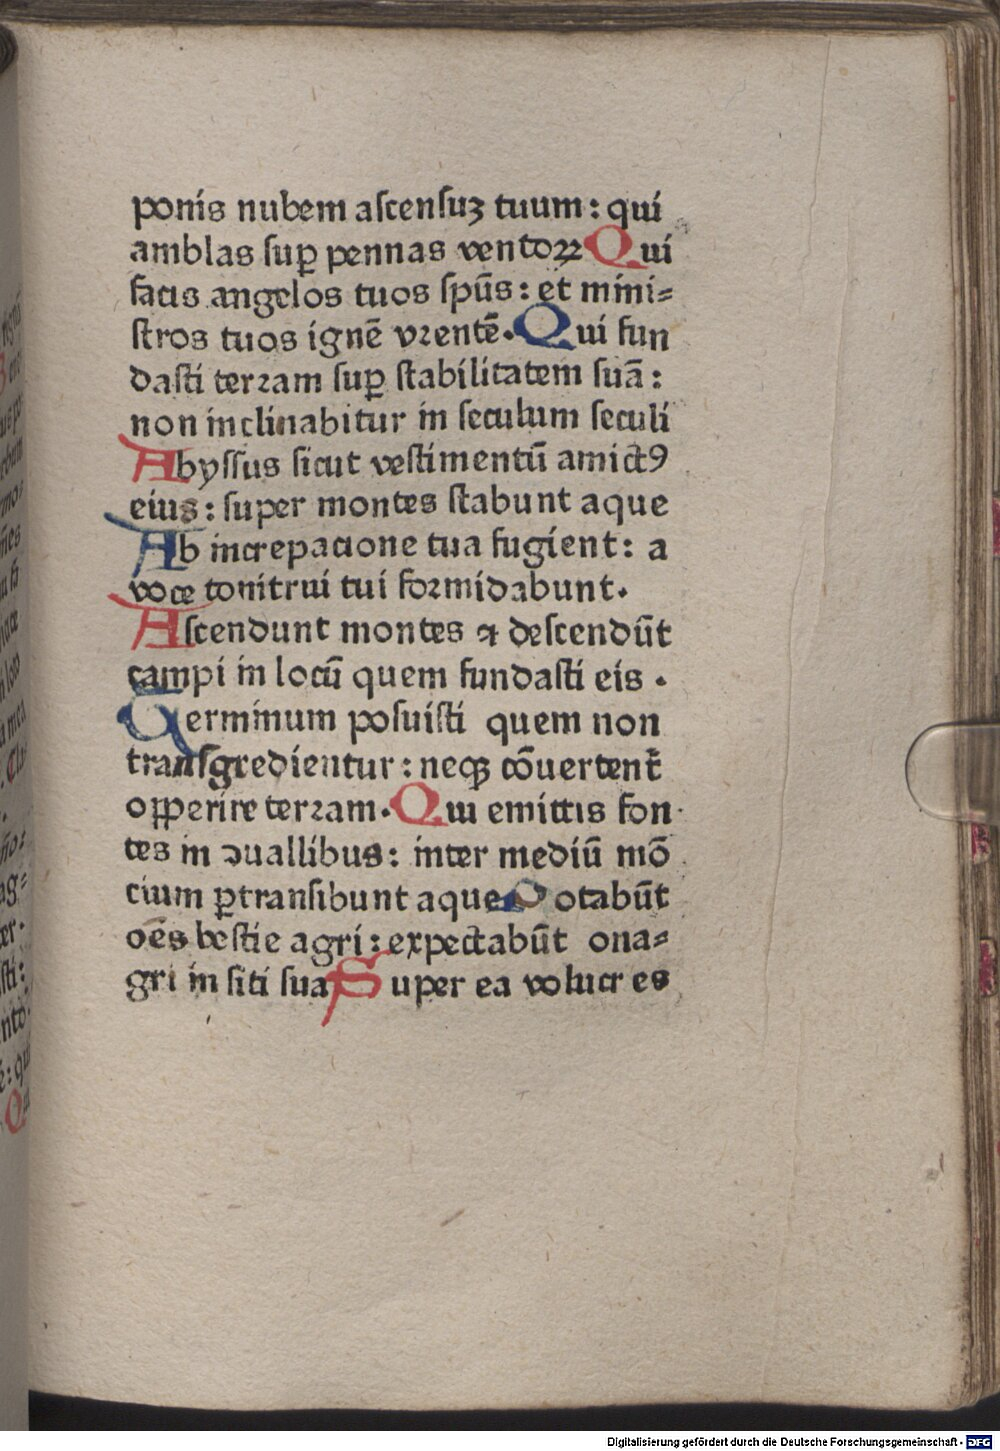 ponis nubem ascensuꝫ tuum : qui
amblas suꝑ pennas ventoꝝ Qui
facis angelos tuos spūs : et mini⸗
stros tuos ignē vrentē. Qui fun
dasti terram suꝑ stabilitatem suā :
non inclinabitur in seculum seculi
Abyssus sicut vestimentū amictꝰ
eius : super montes stabunt aque
Ab increpacione tua fugient : a
voce tonitrui tui formidabunt.
Ascendunt montes ⁊ descendūt
campi in locū quem fundasti eis .
Terminum posuisti quem non
transgredientur : neqꝫ cōuertent᷑
oꝑperire terram. Qui emittis fon
tes in ↄuallibus : inter mediū mō
cium ꝑtransibunt aque Potabūt
oēs bestie agri : expectabūt ona⸗
gri in siti sua Super ea volucres
Digitalisierung gefördert durch die Deutsche Forschungsgemeinschaft - DFG